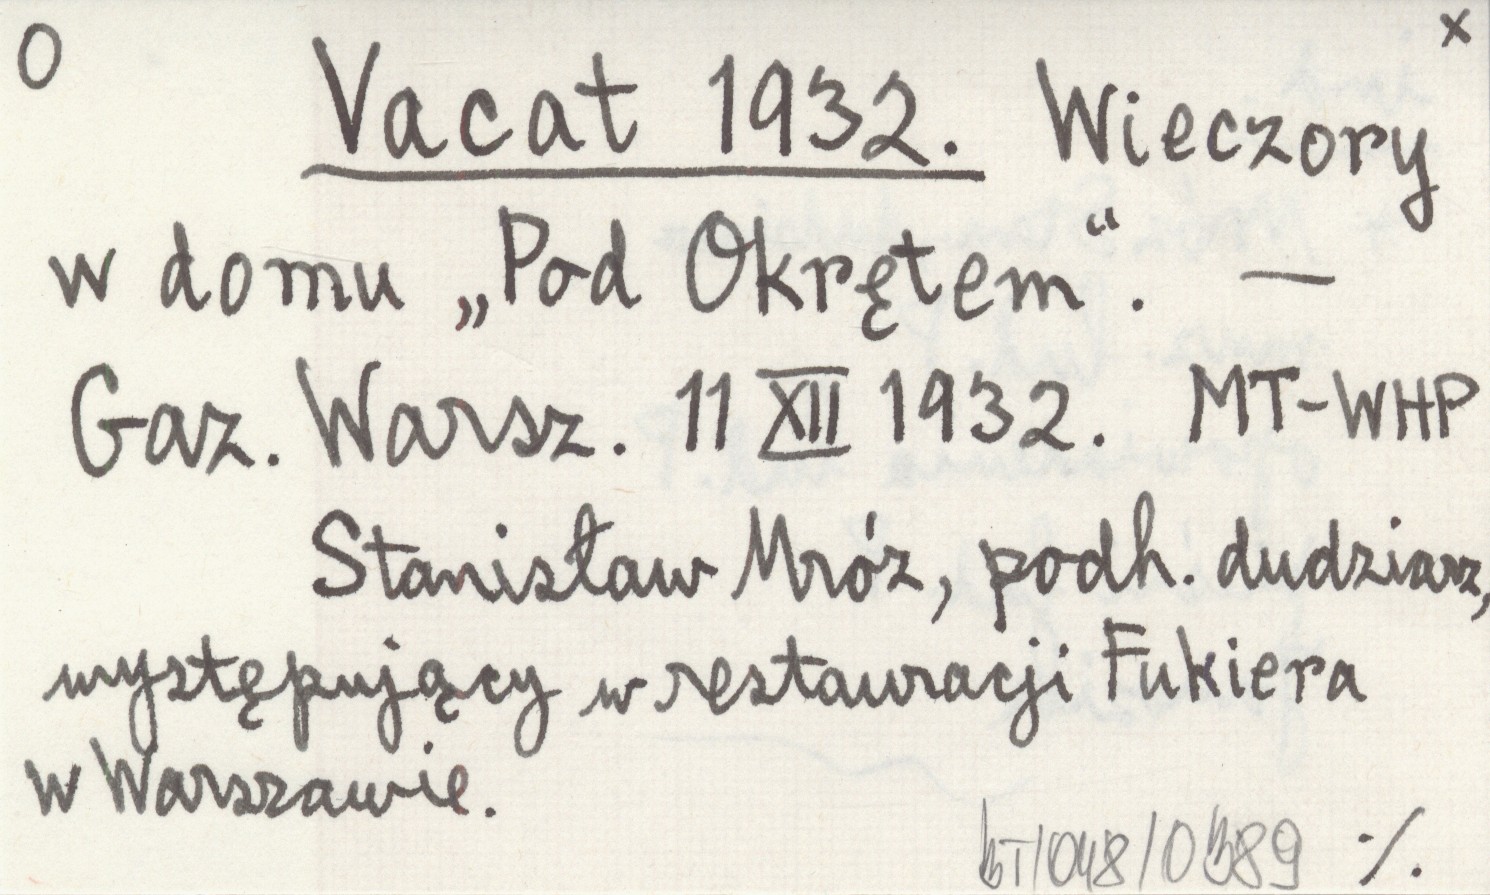 O x
Vacat 1932. Wieczory
w domu „Pod Okrętem“. —
Gaz. Warsz. 11 XII 1932. MT-WHP
Stanisław Mróz, podh. dudziarz,
występujący w restauracji Fukiera
w Warszawie.
BT/048/0389 ·/.